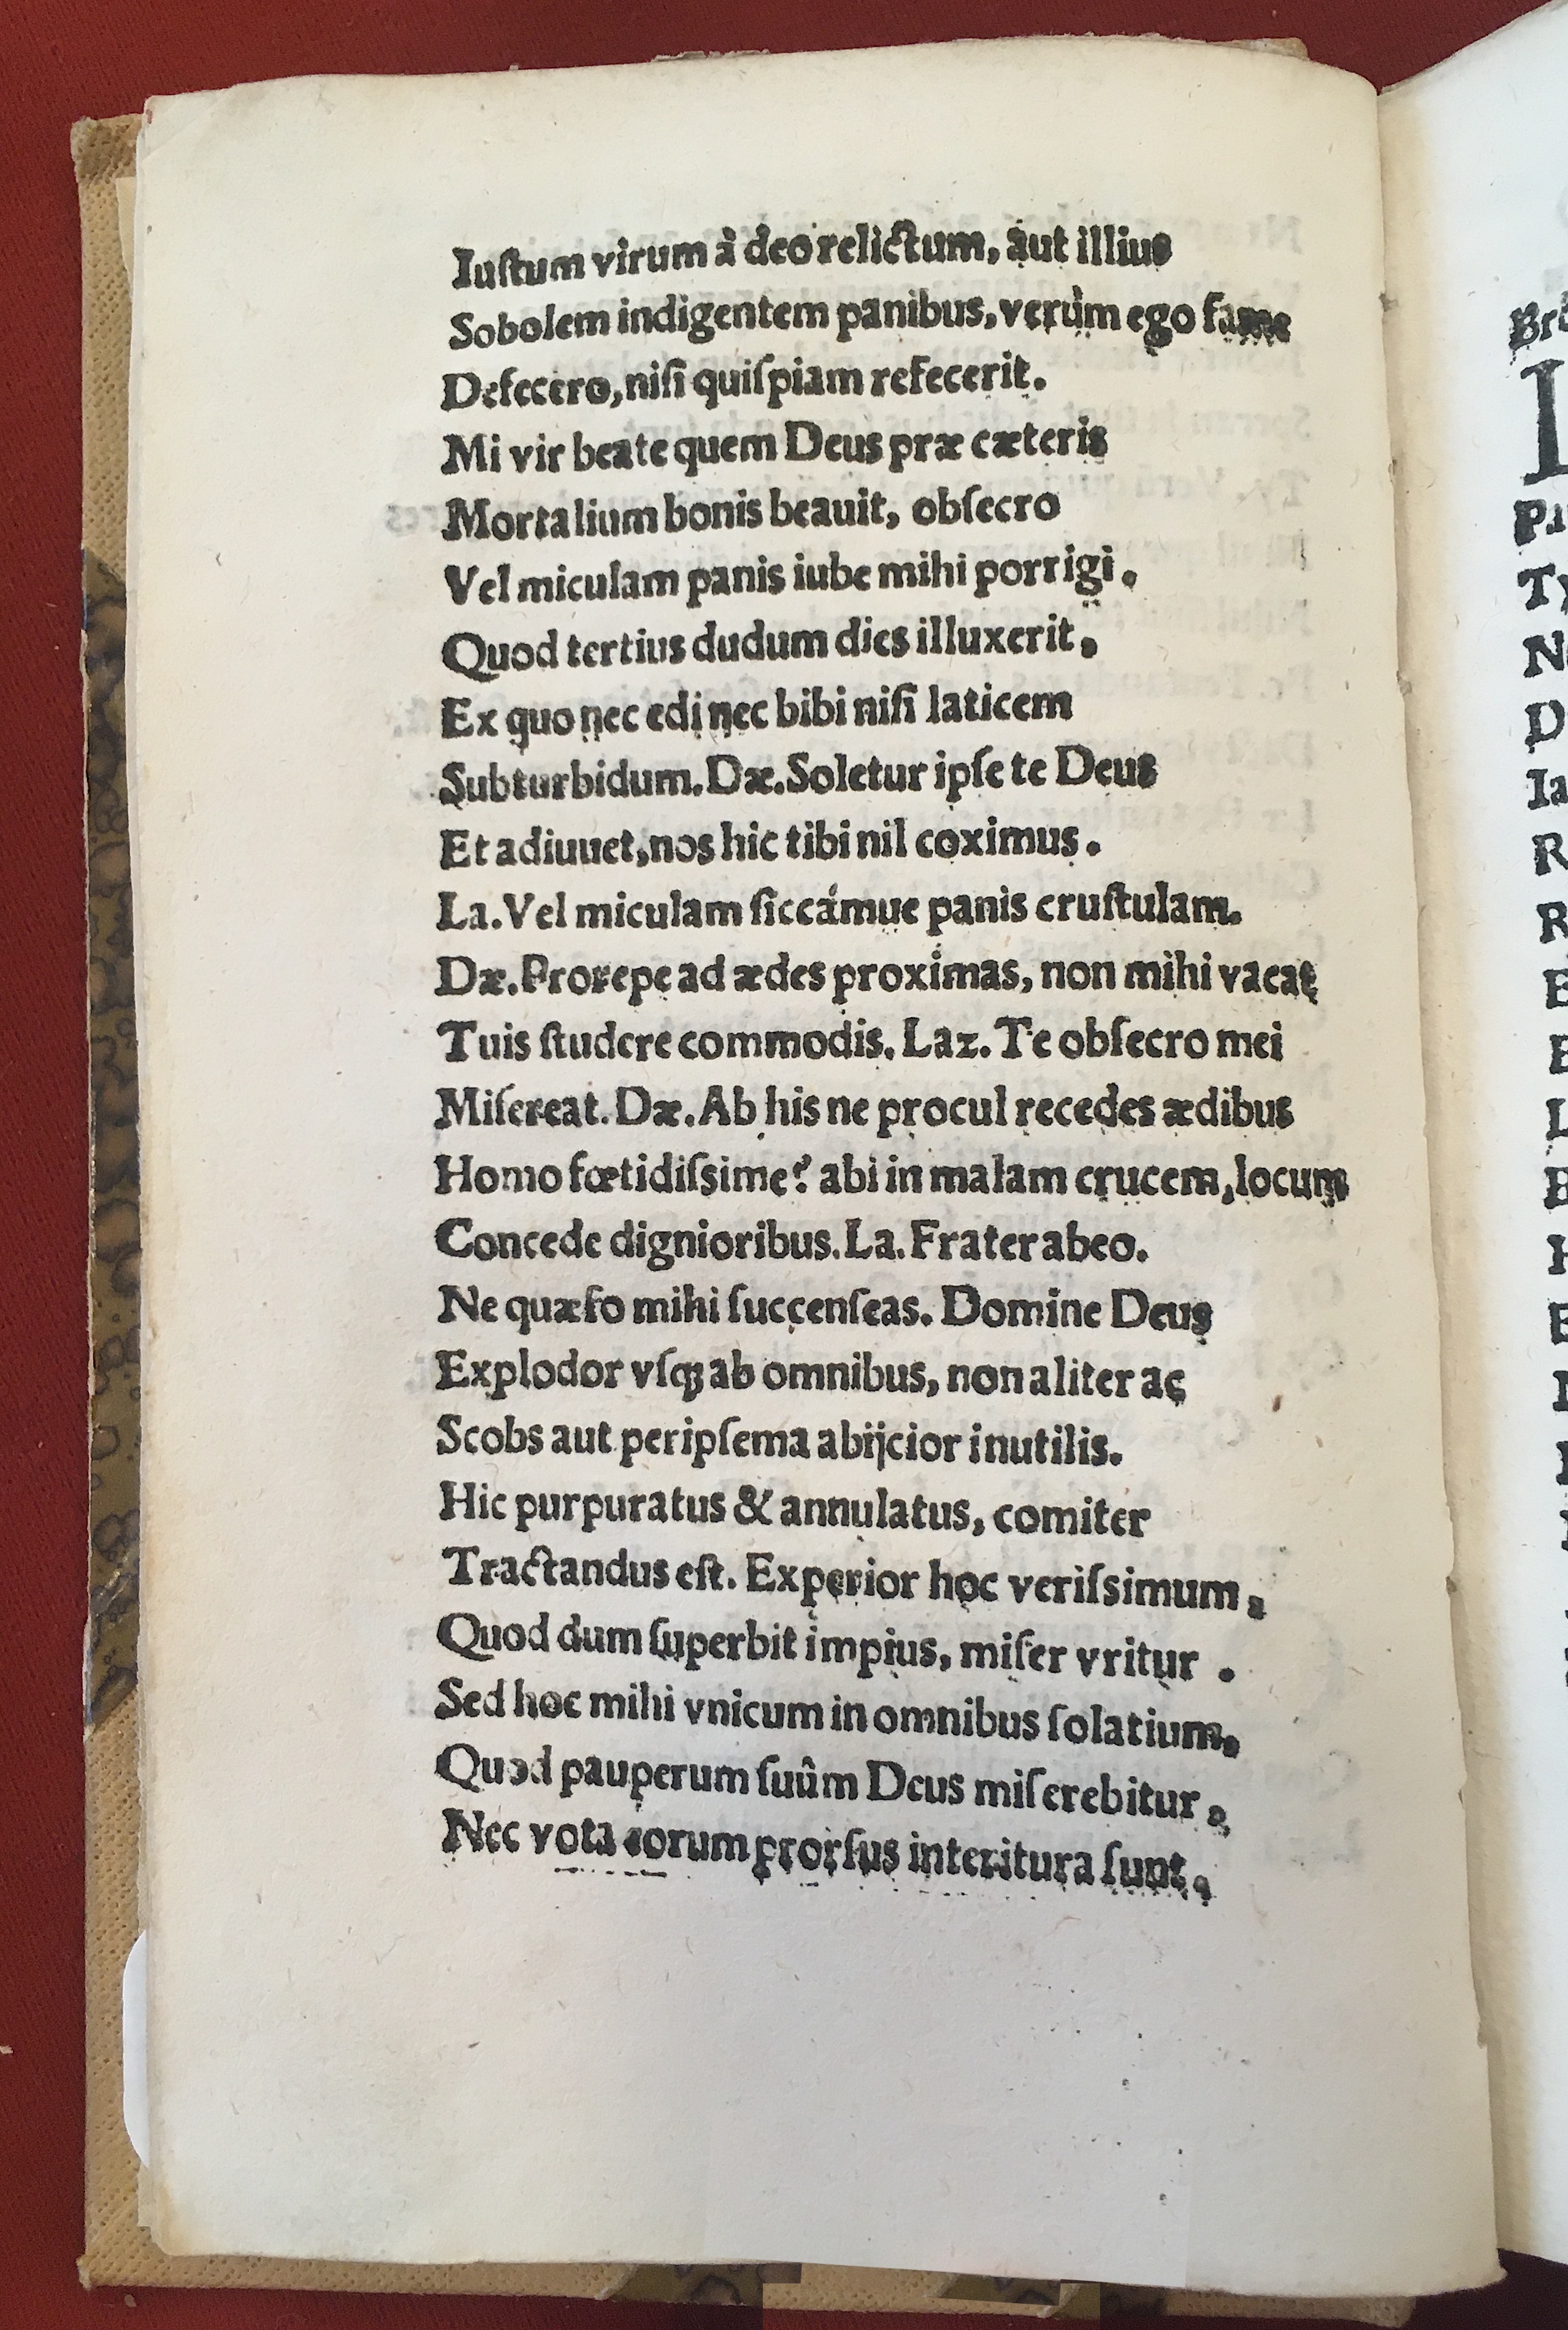 Iuſtum virum à deo relictum, aut illius
Sobolem indigentem panibus, verùm ego fame
Defecero, niſi quiſpiam refecerit.
Mi vir beate quem Deus præ cæteris
Mortalium bonis beauit, obſecro
Vel miculam panis iube mihi porrigi.
Quod tertius dudum dies illuxerit,
Ex quo nec edi nec bibi niſi laticem
Subturbidum. Dæ. Soletur ipſe te Deus
Et adiuuet, nos hic tibi nil coximus.
La. Vel miculam ſiccámue panis cruſtulam.
Dæ. Prorepe ad ædes proximas, non mihi vacat
Tuis ſtudere commodis. Laz. Te obſecro mei
Miſereat. Dæ. Ab his ne procul recedes ædibus
Homo fœtidiſsime? abi in malam crucem, locum
Concede dignioribus. La. Frater abeo.
Ne quæſo mihi ſuccenſeas. Domine Deus
Explodor vſqꝫ ab omnibus, non aliter ac
Scobs aut peripſema abijcior inutilis.
Hic purpuratus & annulatus, comiter
Tractandus eſt. Experior hoc veriſsimum,
Quod dum ſuperbit impius, miſer vritur .
Sed hoc mihi vnicum in omnibus ſolatium,
Quod pauperum ſuûm Deus miſerebitur,
Nec vota eorum prorſus interitura ſunt.